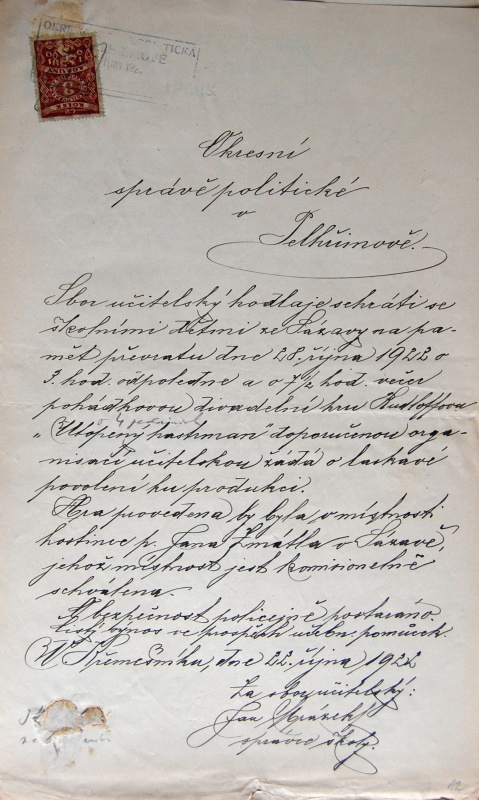 Okresní
správě politické
v
Pelhřimově.
Sbor učitelský hodlaje sehráti se
školními dětmi ze Sázavy na pa-
měť převratu dne 28. října 1922 o
3. hod. odpoledne a o 7½ hod. večer
pohádkovou divadelní hru Rudloffovu
„Utopený hastrman" doporučenou orga-
nisací učitelskou žádá o laskavé
povolení ku produkci.
Hra provedena by byla v místnosti
hostince p. Jana Zmátla v Sázavě,
jehož místnost jest komisionelně
schválena.
O bezpečnost policejně postaráno.
Čistý výnos ve prospěch učebn. pomůcek.
V Křemešníku, dne 22. října 1922
Za sbor učitelský:
Jan
správce školy.